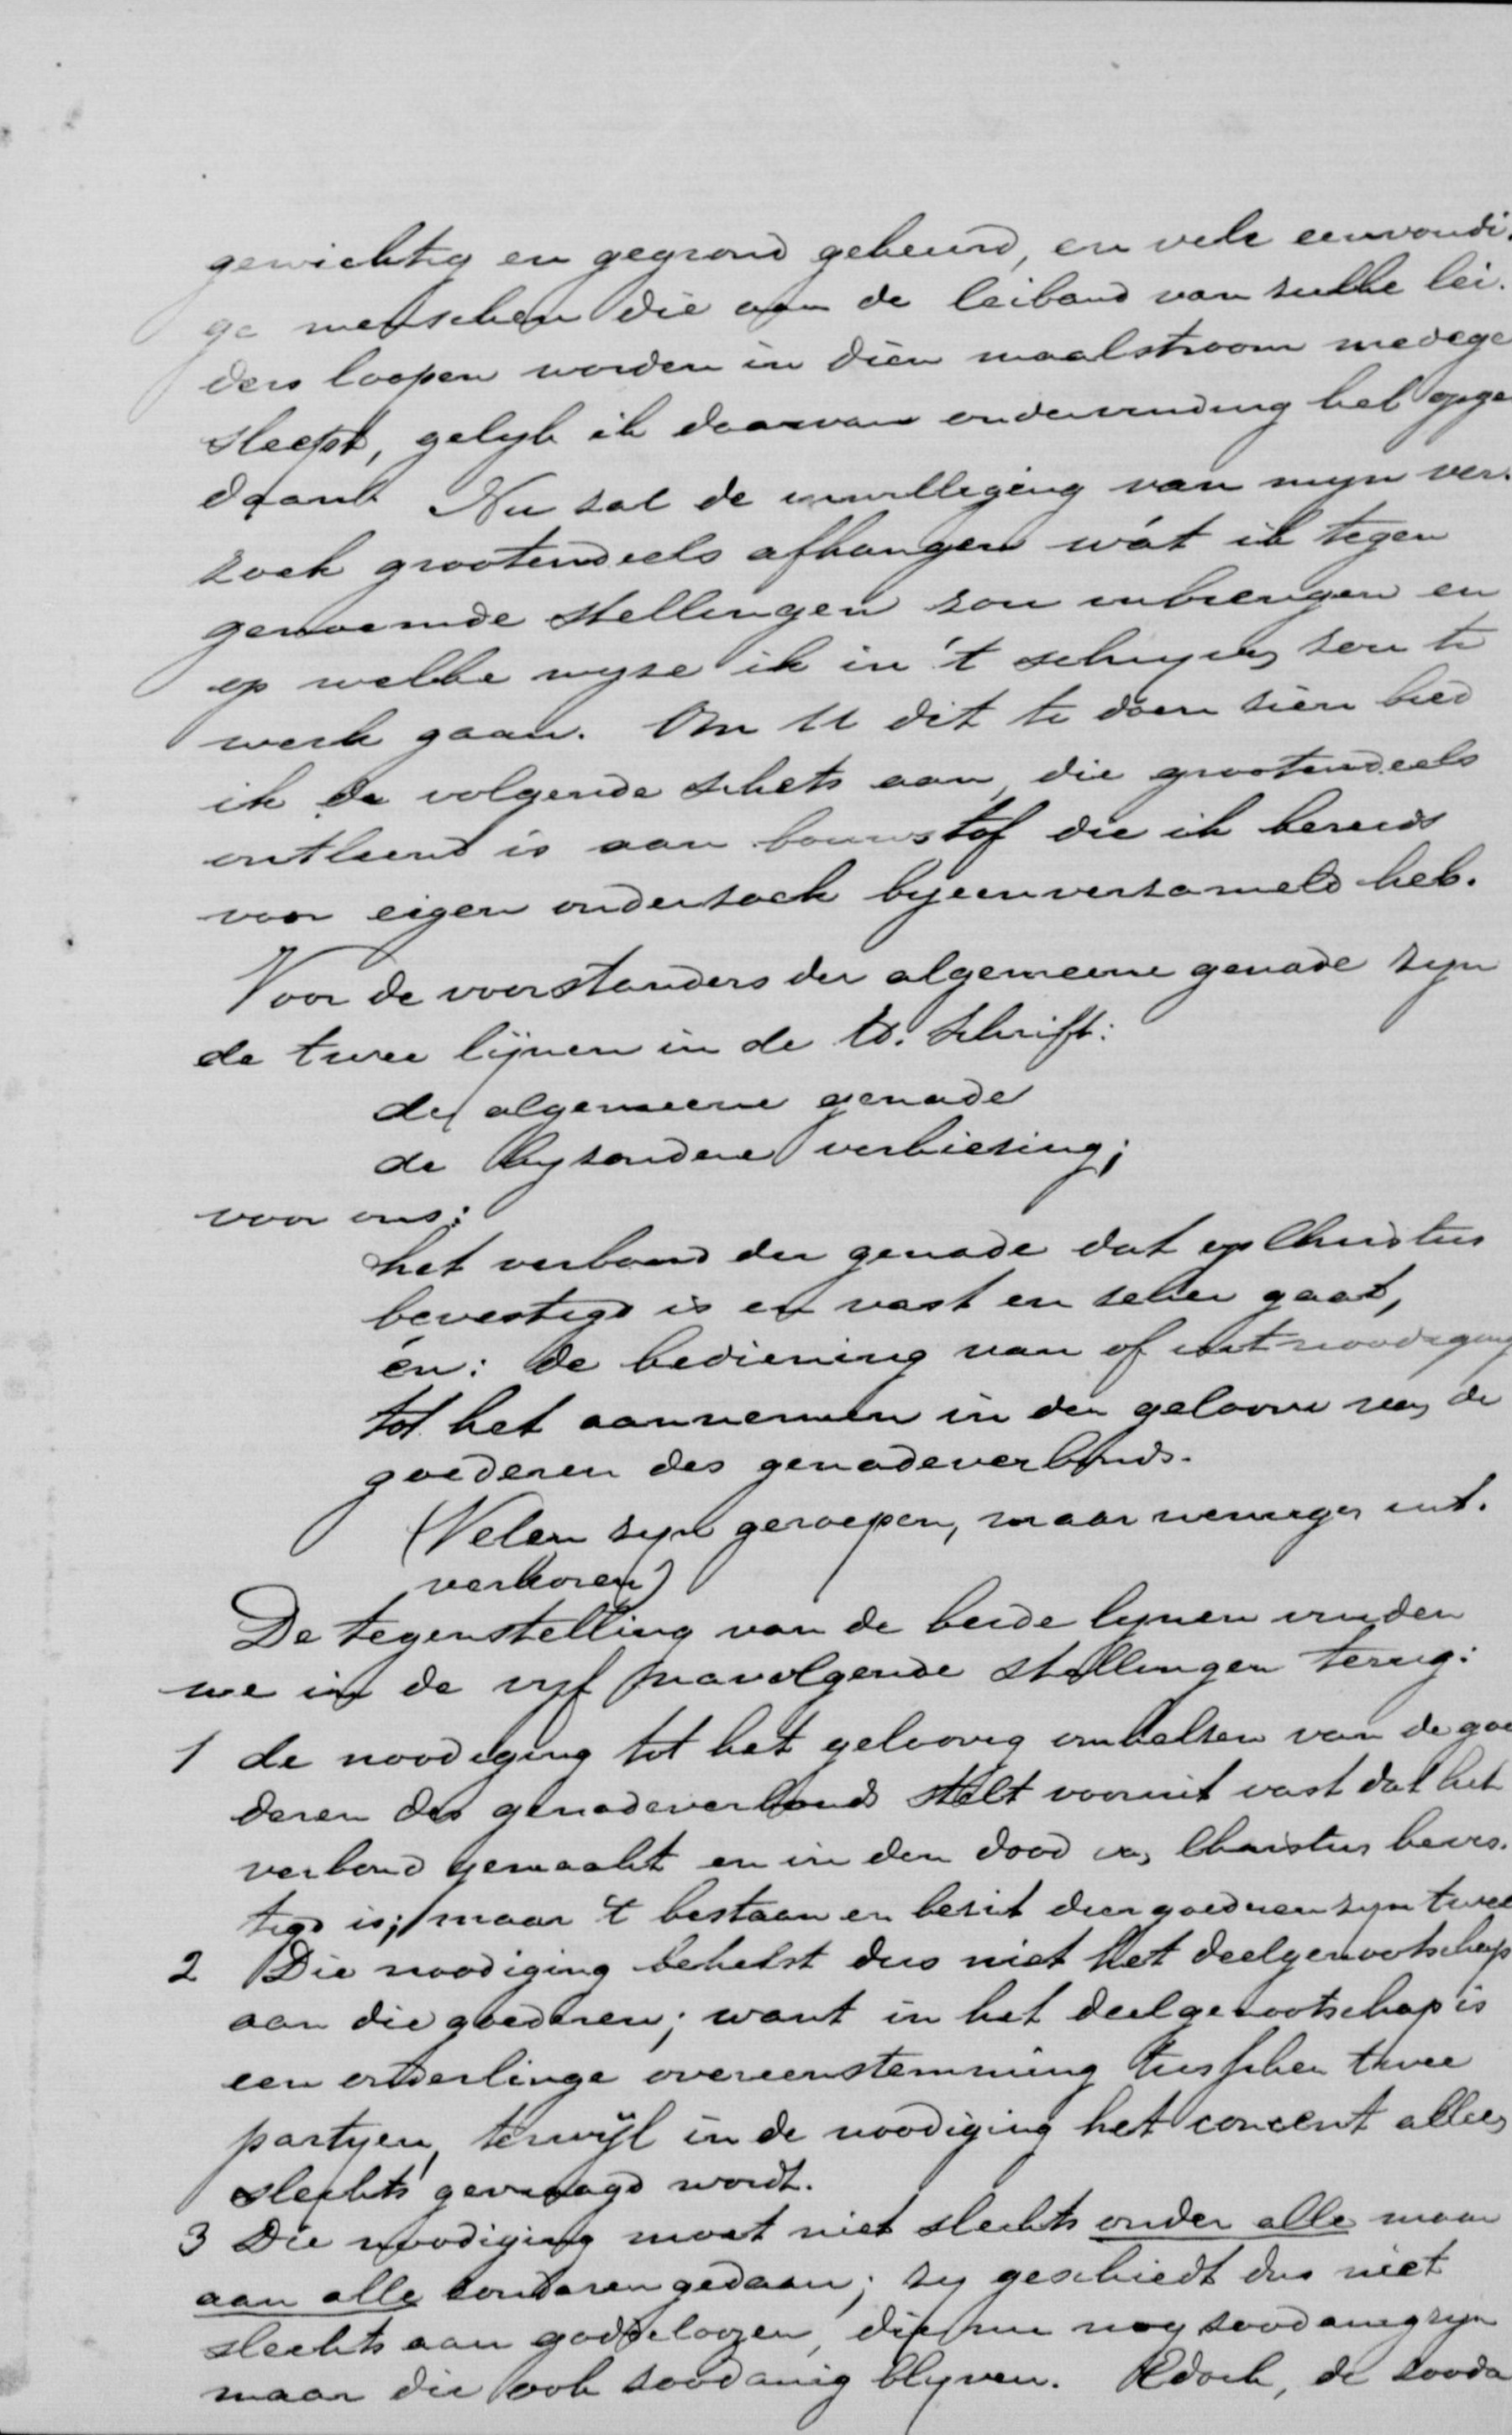 gewichtig en gegrond gekeurd, en vele eenvoudi-
ge menschen die aan de leiband van zulke lei-
ders loopen worden in dien maalstroom medege
sleept, gelyk ik daarvan ondervinding heb opge
daan. Nu zal de inwilliging van myn ver-
zoek grootendeels afhangen wát ik tegen
genoemde stellingen zou inbrengen en
op welke wyze ik in 't schryven zou te
werk gaan. Om U dit te doen zien bied
ik de volgende schets aan, die grootendeels
ontleend is aan bouwstof die ik bereids
voor eigen onderzoek byeenverzameld heb.
Voor de voorstanders der algemeene genade zyn
de twee lijnen in de H. Schrift:
de algemeene genade
de byzondere verkiezing;
voor ons:
het verbond der genade dat op Christus
bevestigd is en vast en zeker gaat,
én: de bediening van of uitnoodiging
tot het aannemen in den geloove van de
goederen des genadeverbonds.
(Velen zyn geroepen, maar weinigen uit-
verkoren)
De tegenstelling van de beide lynen vinden
we in de vyf navolgende stellingen terug:
1 de noodiging tot het geloovig omhelzen van de goe
deren des genadeverbonds stelt vooruit vast dat het
verbond gemaakt en in den dood van Christus beves-
tigd is; maar 't bestaan en bezit dier goederen zyn twee
2 Die noodiging behelst dus niet het deelgenootschap
aan die goederen; want in het deelgenootschap is
een onderlinge overeenstemming tusschen twee
partyen, terwijl in de noodiging het concent alleen
slechts gevraagd wordt.
3 Die noodiging moet niet slechts onder alle maar
aan alle zondaren gedaan; zy geschiedt dus niet
slechts aan goddeloozen, die nu nog zoodanig zyn
maar die ook zoodanig blyven. Edoch, de zooda